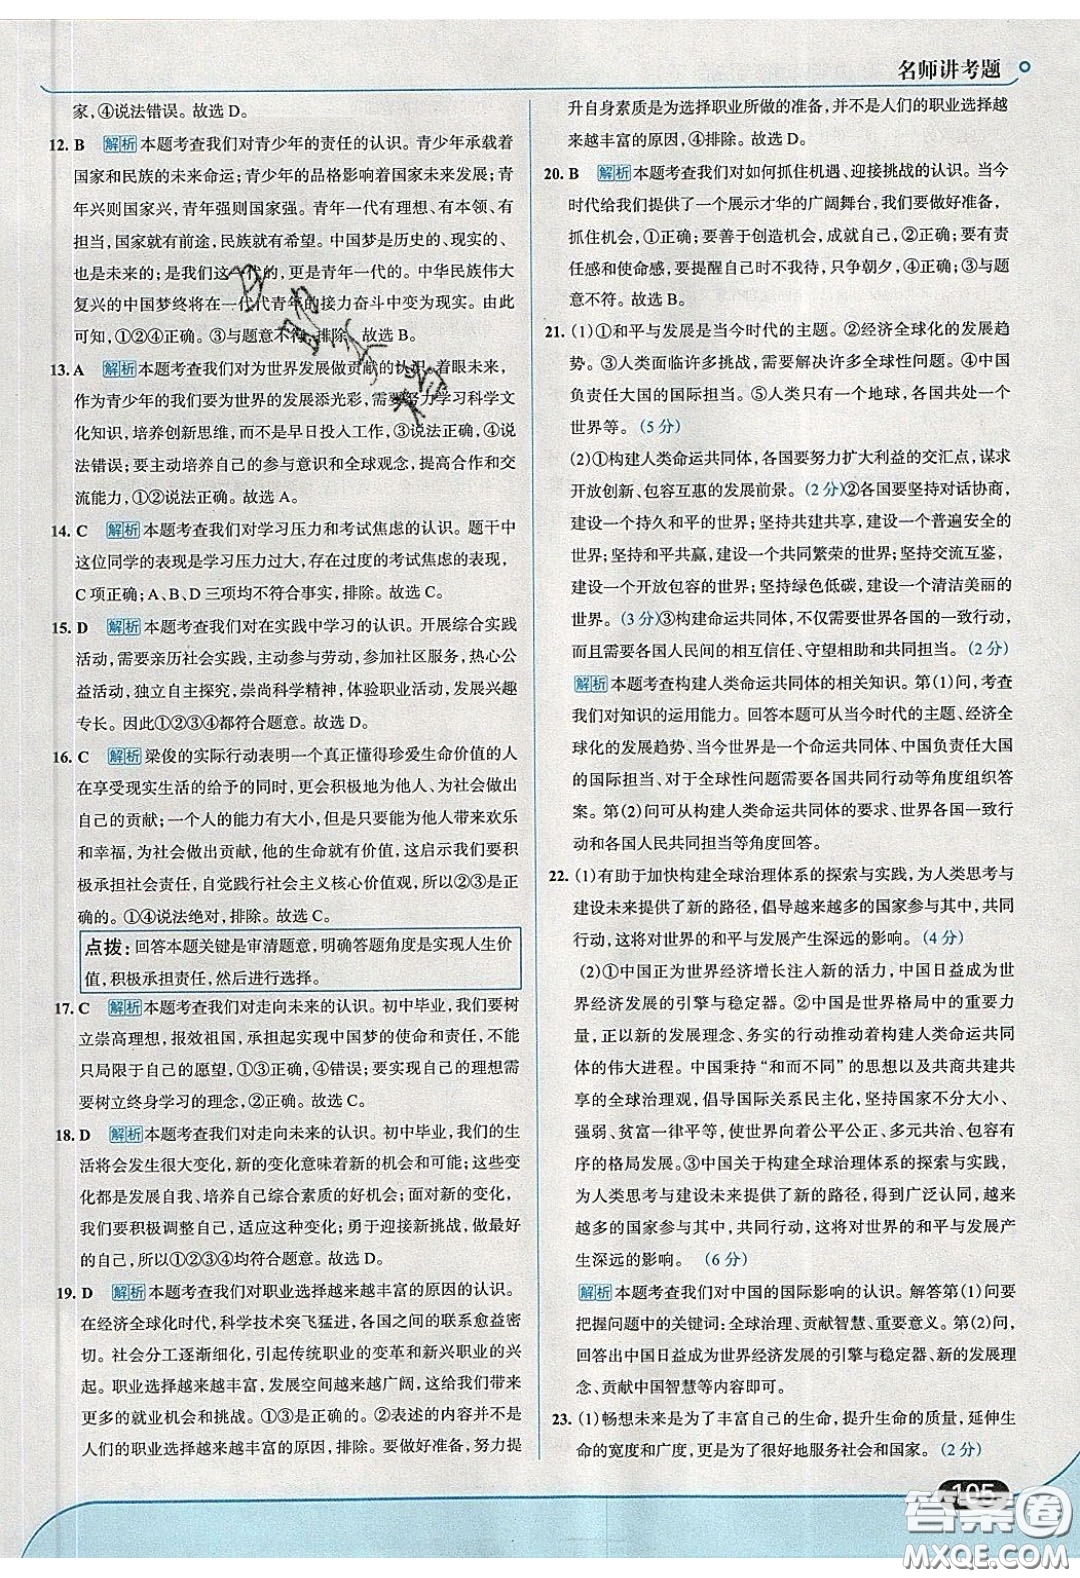 名师讲考题
家,④说法错误。故选 D。
12. B 解析 本题考查我们对青少年的责任的认识。青少年承载着
国家和民族的未来命运;青少年的品格影响着国家的未来发展;青
年兴则国家兴,青年强则国家强。青年一代有理想、有本领、有
担当,国家就有前途,民族就有希望。中国梦是历史的、现实的、
也是未来的;是我们这一代的,更是青年一代的。中华民族伟大
复兴的中国梦终将在一代代青年的接力奋斗中变为现实。由此
可知,①②④正确。③与题意不符,排除。故选 B。
13. A 解析 本题考查我们对为世界发展做贡献的认识。着眼未来,
作为青少年的我们要为世界的发展添光彩,需要努力学习科学文
化知识,培养创新思维,而不是早日投入工作,③说法正确,④说
法错误;要主动培养自己的参与意识和全球观念,提高合作和交
流能力,①②说法正确。故选 A。
14. C 解析 本题考查我们对学习压力和考试焦虑的认识。题干中
这位同学的表现是学习压力过大,存在过度的考试焦虑的表现,
C 项正确;A、B、D 三项均不符合事实,排除。故选 C。
15. D 解析 本题考查我们对在实践中学习的认识。开展综合实践
活动,需要亲历社会实践,主动参与劳动,参加社区服务,热心公
益活动,独立自主探究,崇尚科学精神,体验职业活动,发展兴趣
专长。因此①②③④都符合题意。故选 D。
16. C 解析 梁俊的实际行动表明一个真正懂得珍爱生命价值的人
在享受现实生活的给予的同时,更会积极地为他人、为社会做出
自己的贡献;一个人的能力有大小,但是只要能为他人带来欢乐
和幸福,为社会做出贡献,他的生命就有价值,这启示我们要积
极承担社会责任,自觉践行社会主义核心价值观,所以②③是正
确的。①④说法绝对,排除。故选 C。
点拨:回答本题关键是审清题意,明确答题角度是实现人生价
值,积极承担责任,然后进行选择。
17. C 解析 本题考查我们对走向未来的认识。初中毕业,我们要树
立崇高理想,报效祖国,承担实现中国梦的使命和责任,而不能
只局限于自己的愿望,①③正确,④错误;要实现自己的理想,需
要树立终身学习的理念,②正确。故选 C。
18. D 解析 本题考查我们对走向未来的认识。初中毕业,我们的生
活将会发生很大变化,新的变化意味着新的机会和可能;这些变
化都是发展自我、培养自己综合素质的好机会;面对新的变化,
我们要积极调整自己,适应这种变化;勇于迎接新挑战,成就更
好的自己,所以①②③④均符合题意。故选 D。
19. D 解析 本题考查我们对职业选择越来越丰富的原因的认识。
在经济全球化时代,科学技术突飞猛进,各国之间的联系愈益密
切。社会分工逐渐细化,引起传统职业的变革和新兴职业的兴
起。职业选择越来越丰富,发展空间越来越广阔,给我们带来了
更多的就业机会和挑战。①③是正确的;②表述的内容并不是
人们的职业选择越来越丰富的原因,排除。要做好准备,努力提
升自身素质是为选择职业所做的准备,并不是人们的职业选择越
来越丰富的原因,④排除。故选 D。
20. B 解析 本题考查我们对如何抓住机遇、迎接挑战的认识。当今
时代给我们提供了一个展示才华的广阔舞台,我们要做好准备,
抓住机会,①正确;要善于创造机会,成就自己,②正确;要有责
任感和使命感,要提醒自己时不我待,只争朝夕,④正确;③与题
意不符。故选 B。
21. (1)①和平与发展是当今时代的主题。②经济全球化的发展趋
势。③人类面临许多挑战,需要解决许多全球性问题。④中国
负责任大国的国际担当。⑤人类只有一个地球,各国共处一个
世界等。(5 分)
(2)①构建人类命运共同体,各国要努力扩大利益的交汇点,谋求
开放创新、包容互惠的发展前景。(2 分)②各国要坚持对话协商,
建设一个持久和平的世界;坚持共建共享,建设一个普遍安全的
世界;坚持和平共赢,建设一个共同繁荣的世界;坚持交流互鉴,
建设一个开放包容的世界;坚持绿色低碳,建设一个清洁美丽的
世界。(3 分)③构建人类命运共同体,不仅需要世界各国的一致行动,
而且需要各国人民间的相互信任、守望相助和共同担当。(2 分)
解析 本题考查构建人类命运共同体的相关知识。第(1)问,考查
我们对知识的运用能力。回答本题可从当今时代的主题、经济全
球化的发展趋势、当今世界是一个命运共同体、中国负责任大国
的国际担当、对于全球性问题需要各国共同行动等角度组织答
案。第(2)问可从构建人类命运共同体的要求、世界各国一致行
动和各国人民共同担当等角度回答。
22. (1)有助于加快构建全球治理体系的探索与实践,为人类思考与
建设未来提供了新的路径,倡导越来越多的国家参与其中,共同
行动,这将对世界的和平与发展产生深远的影响。(4 分)
(2)①中国正为世界经济增长注入新的活力,中国日益成为世
界经济发展的引擎与稳定器。②中国是世界格局中的重要力
量,正以新的发展理念、务实的行动推动着构建人类命运共同体
的伟大进程。中国秉持“和而不同”的思想以及共商共建共
享的全球治理观,倡导国际关系民主化,坚持国家不分大小、
强弱、贫富一律平等,使世界向着公平公正、多元共治、包容有
序的格局发展。③中国关于构建全球治理体系的探索与实践,
为人类思考与建设未来提供了新的路径,得到广泛认同,越来
越多的国家参与其中,共同行动,这将对世界的和平与发展产
生深远的影响。(6 分)
解析 本题考查我们对中国的国际影响的认识。解答第(1)问要
把握问题中的关键词:全球治理、贡献智慧、重要意义。第(2)问,
回答出中国日益成为世界经济发展的引擎与稳定器、新的发展理
念、贡献中国智慧等内容即可。
23. (1)畅想未来是为了丰富自己的生命,提升生命的质量,延伸生
命的宽度和广度,更是为了很好地服务社会和国家。(2 分)
105
答案圈
MXQE.COM